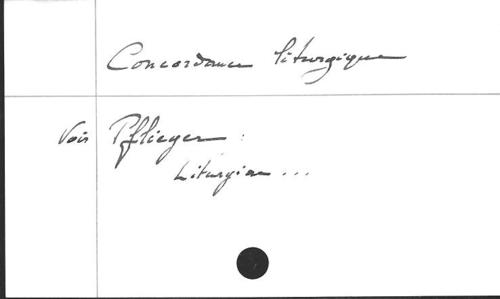 Concordance liturgique
Voir Pflieger :
Liturgiae ...